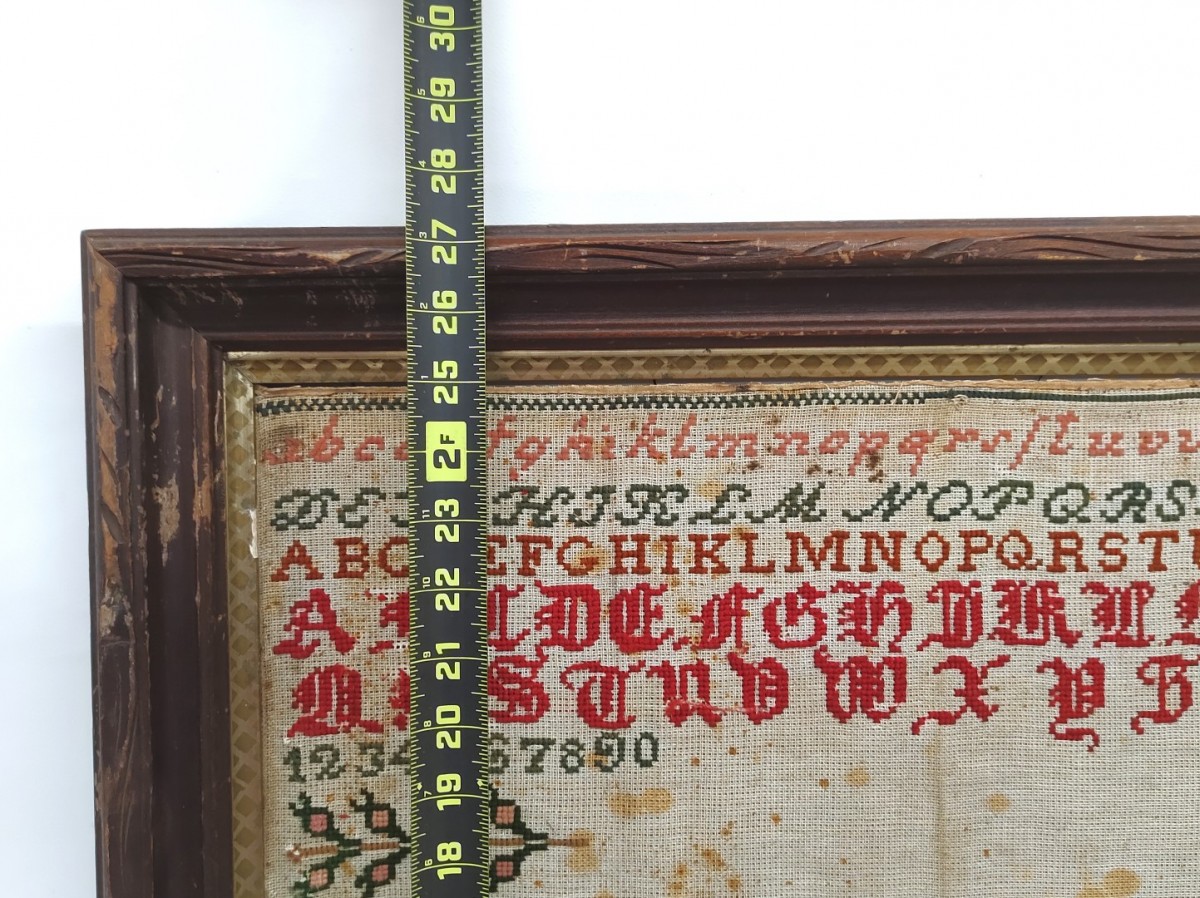 6
30
5
29
4
28
3
27
2
26
1
25
2F
11
23
10
22
9
21
8
20
7
19
6
18
abc fghiklmnopqrsſtuv
DE HIKLMNOPQRS
ABC EFGHIKLMNOPQRST
A CDEFGHIKL
STUVWXYZ
1234 67890